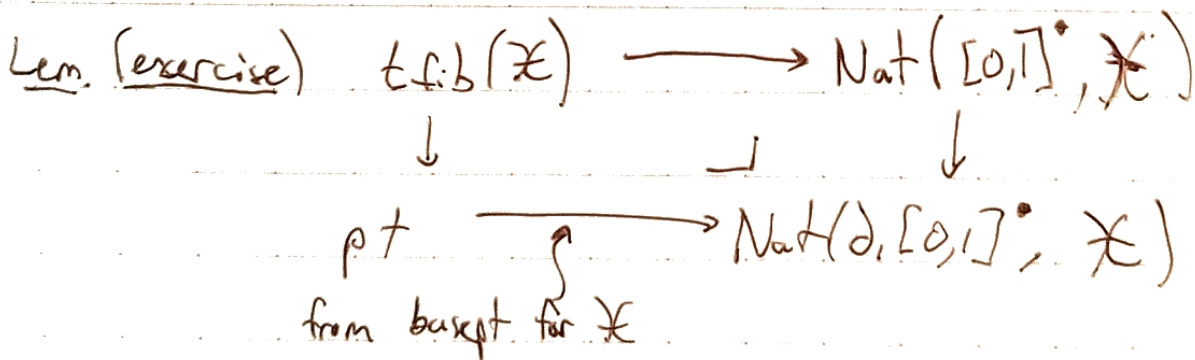 Lem. (exercise) tfib(𝒳) → Nat([0,1]^•, 𝒳)
↓ ⌟ ↓
pt → Nat(∂₁[0,1]^•, 𝒳)
from basept for 𝒳